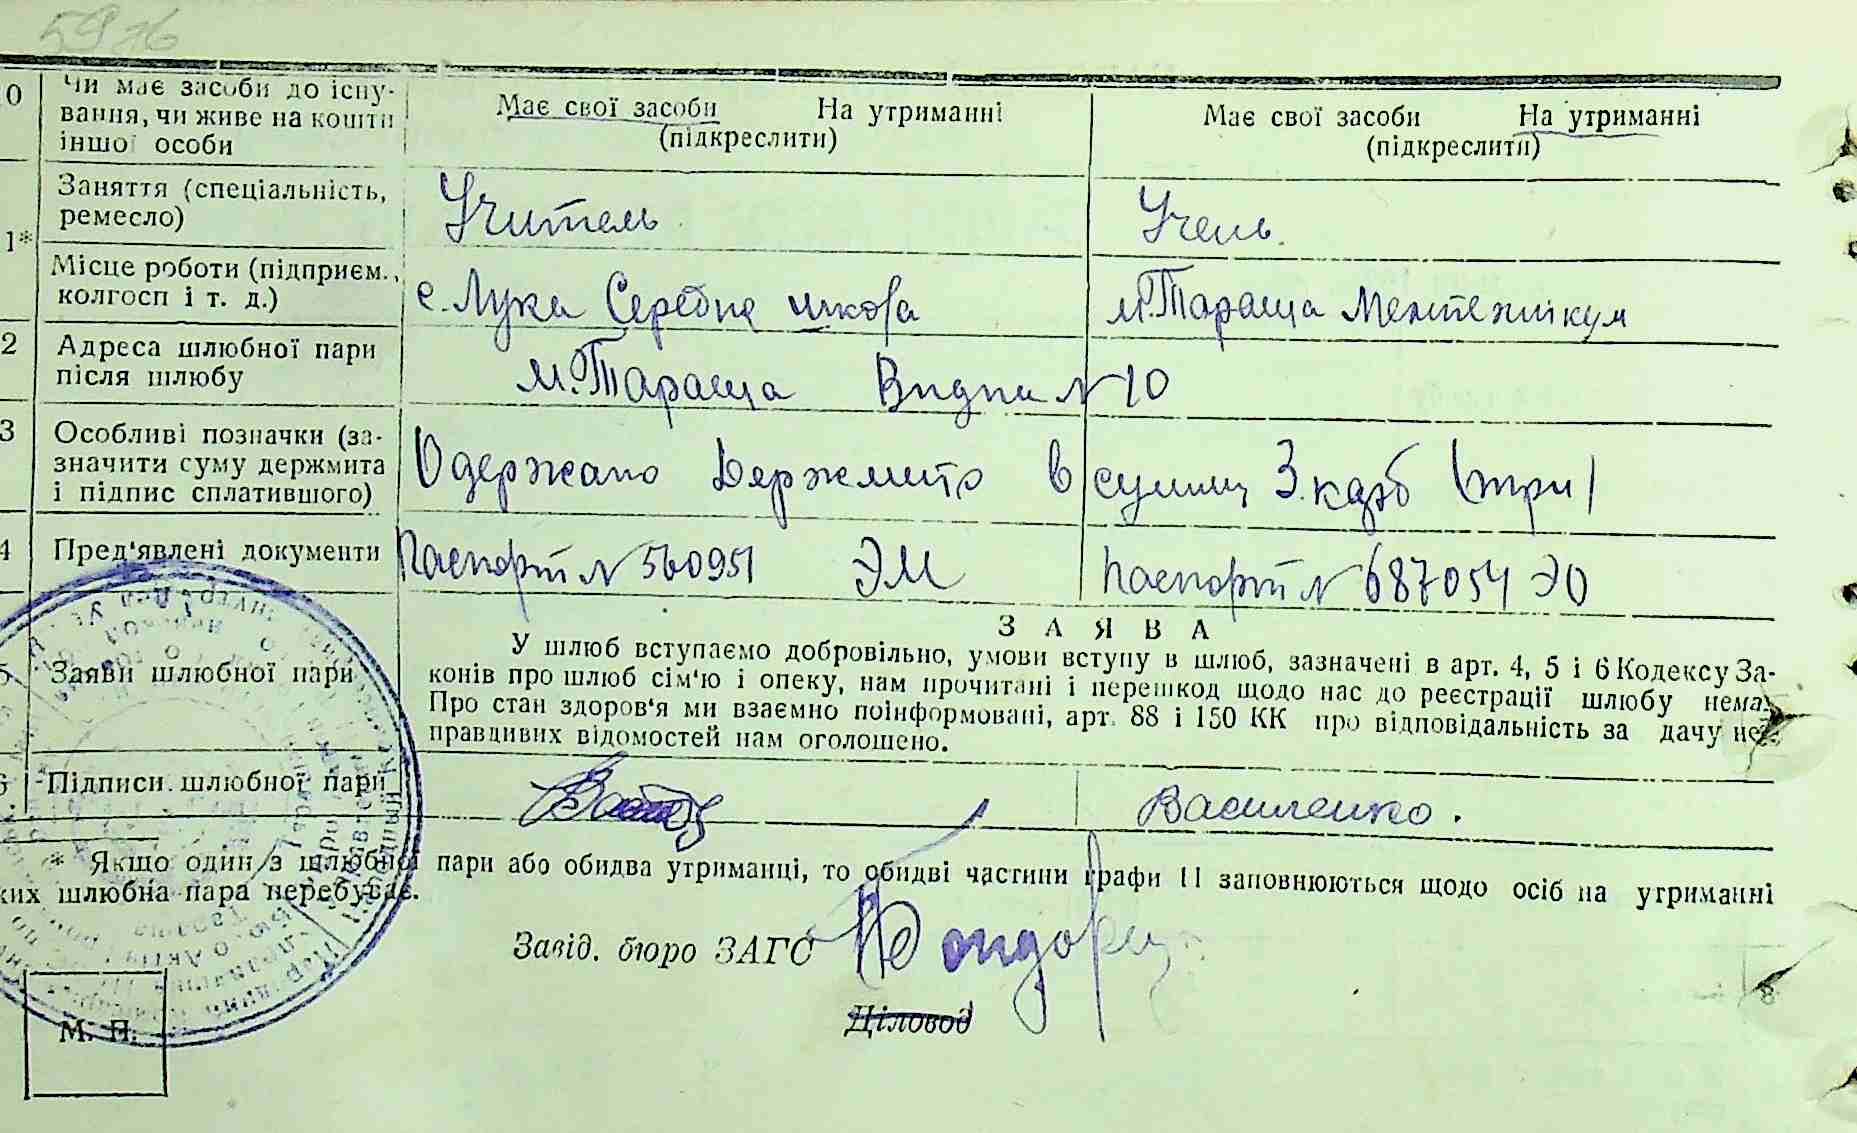 59 зв
0 Чи має засоби до існу-
вання, чи живе на кошти
іншої особи
Має свої засоби На утриманні
(підкреслити)
Має свої засоби На утриманні
(підкреслити)
1* Заняття (спеціальність,
ремесло)
Учитель
Учень.
Місце роботи (підприєм.,
колгосп і т. д.)
с. Лука Середня школа
м. Тараща Мехтехнікум
2 Адреса шлюбної пари
після шлюбу
м. Тараща № 10
3 Особливі позначки (за-
значити суму держмита
і підпис сплатившого)
Одержано держмито в сумі 3 крб (три)
4 Пред'явлені документи
Паспорт № 560951 ЭМ
Паспорт № 687054 ЭО
5 Заяви шлюбної пари
ЗАЯВА
У шлюб вступаємо добровільно, умови вступу в шлюб, зазначені в арт. 4, 5 і 6 Кодексу За-
конів про шлюб сім'ю і опеку, нам прочитані і перешкод щодо нас до реєстрації шлюбу нема.
Про стан здоров'я ми взаємно поінформовані, арт. 88 і 150 КК про відповідальність за дачу не-
правдивих відомостей нам оголошено.
6 Підписи шлюбної пари
Василенко.
* Якщо один з шлюбної пари або обидва утриманці, то обидві частини графи 11 заповнюються щодо осіб на утриманні
ких шлюбна пара перебуває.
Завід. бюро ЗАГС
Діловод
М. П.